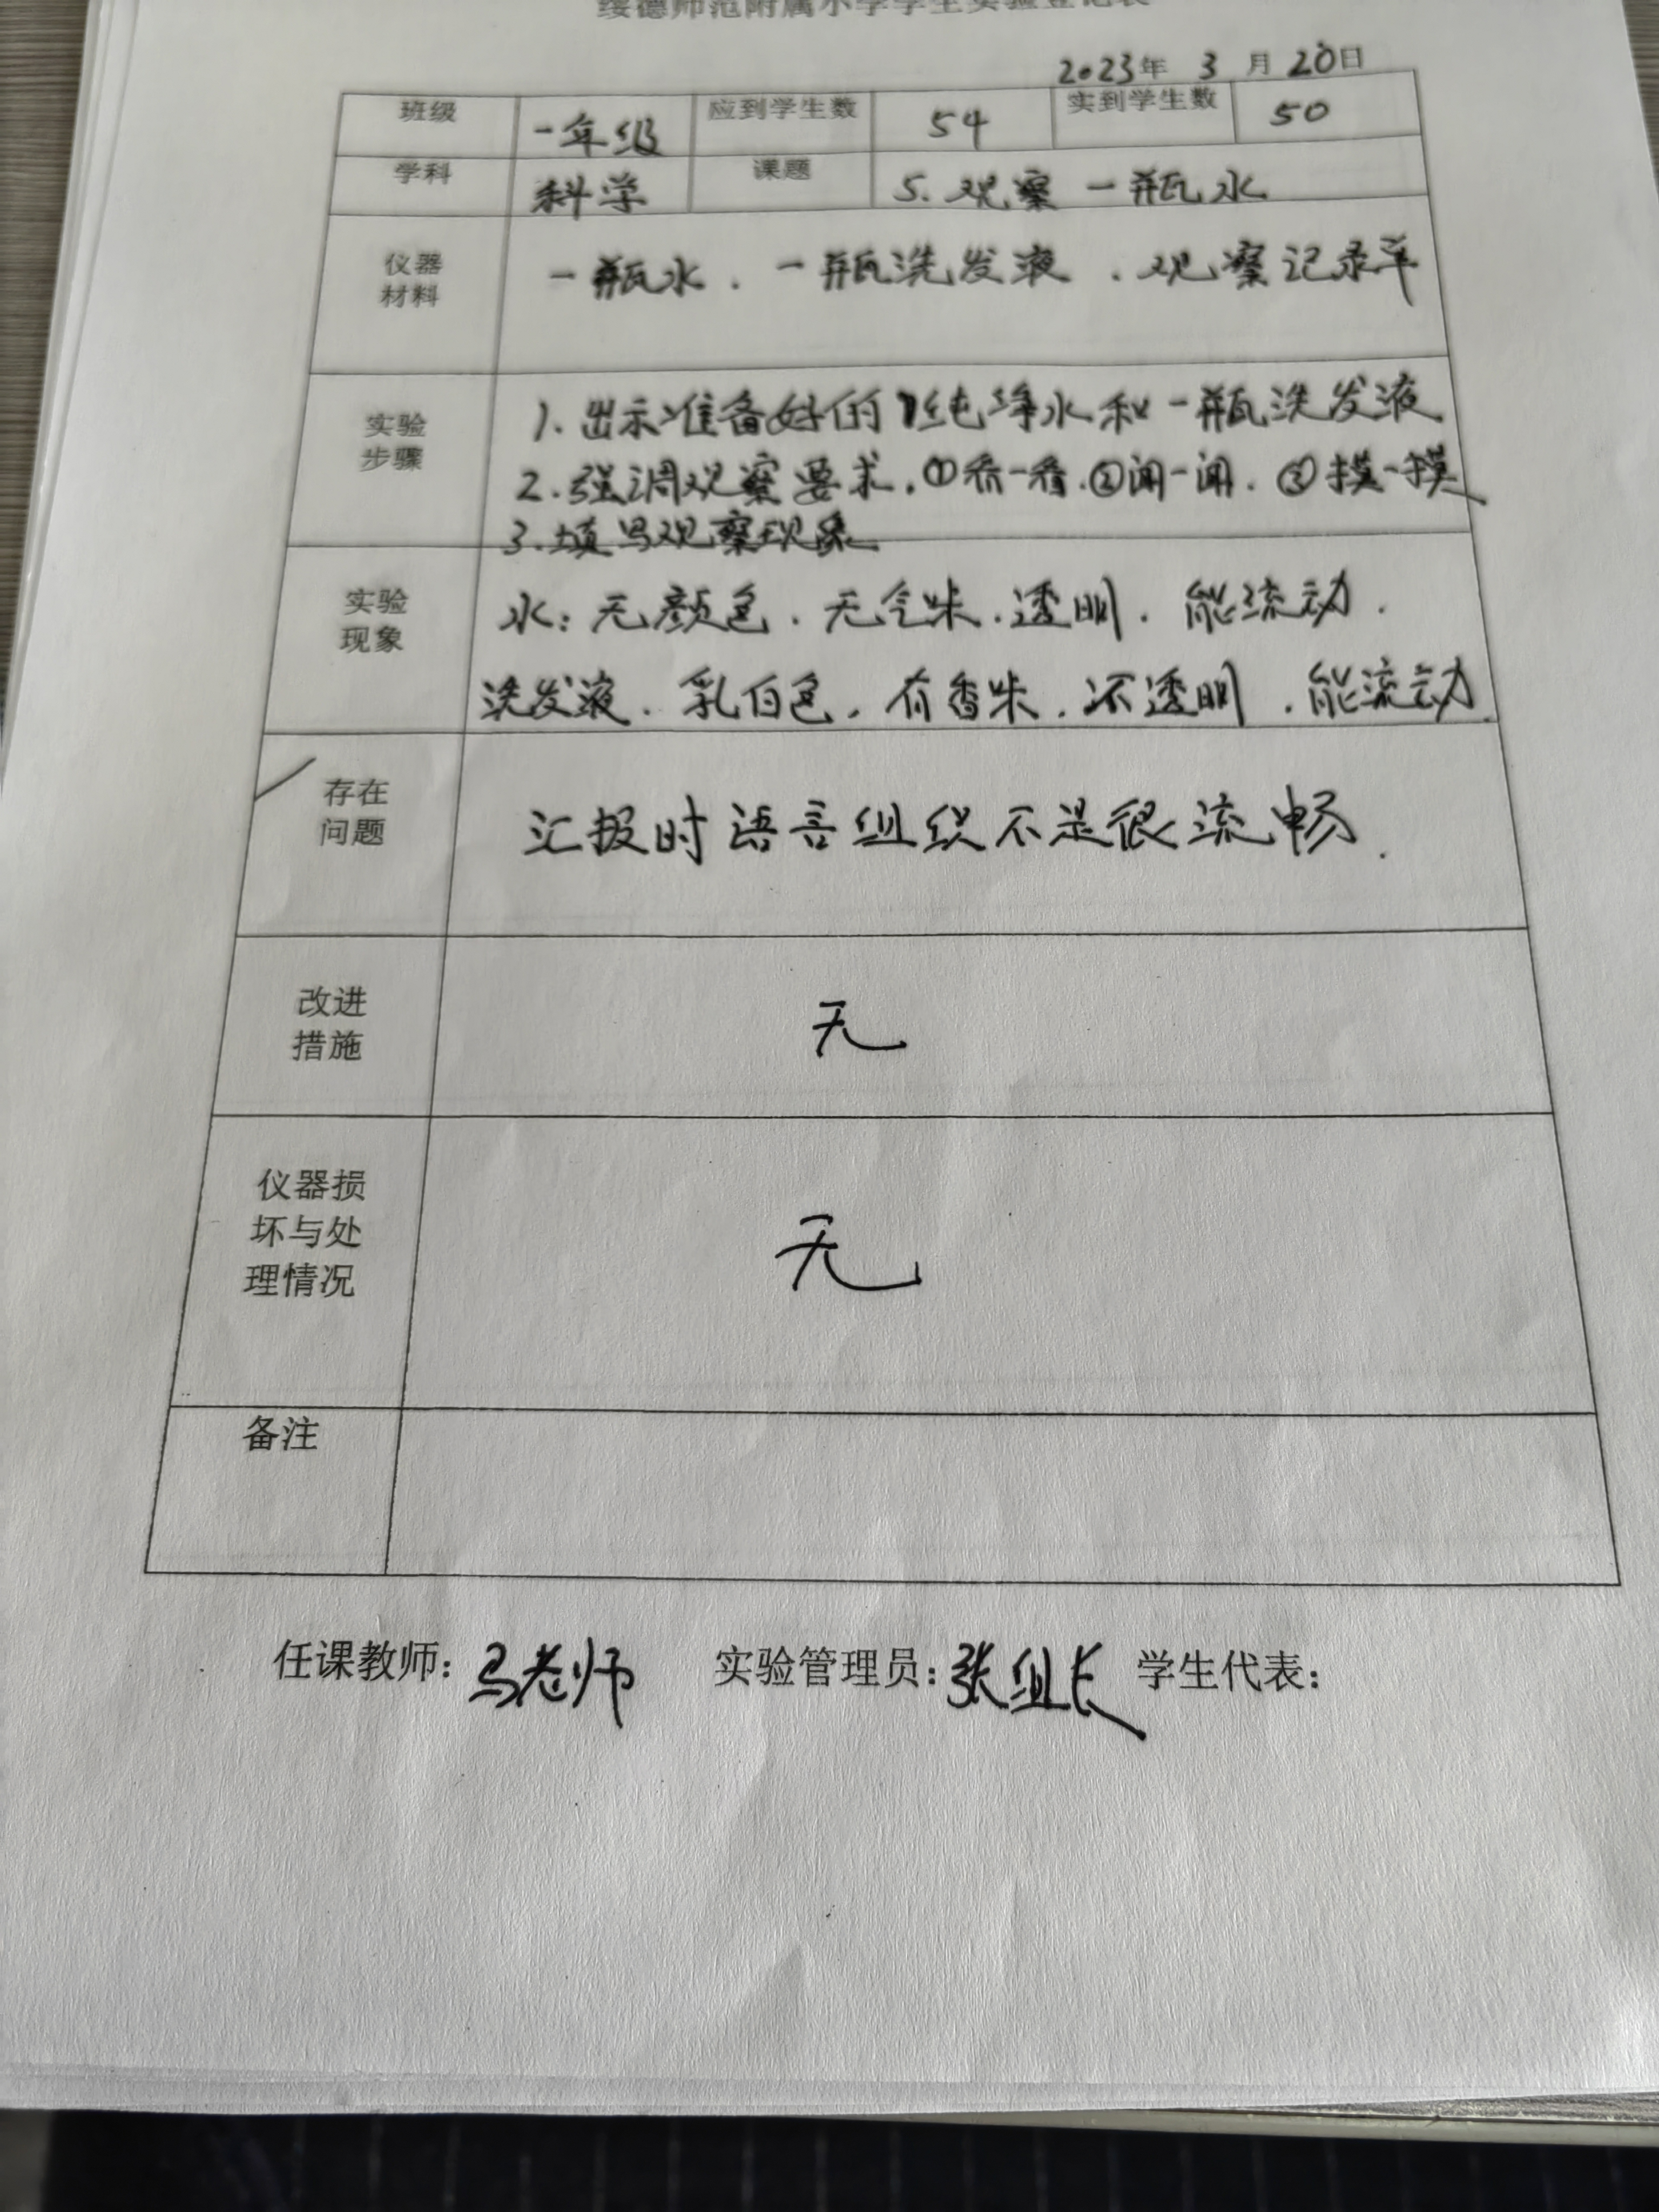 绥德师范附属小学学生实验登记表
2023年 3 月 20日
班级 一年级 应到学生数 54 实到学生数 50
学科 科学 课题 5.观察一瓶水
仪器
材料
一瓶水.一瓶洗发液.观察记录单
实验
步骤
1.出示准备好的纯净水和一瓶洗发液
2.强调观察要求.①看一看.②闻一闻.③摸一摸
3.填写观察现象
实验
现象
水:无颜色.无气味.透明.能流动.
洗发液.乳白色.有香味.不透明.能流动.
存在
问题
汇报时语言组织不是很流畅.
改进
措施
无
仪器损
坏与处
理情况
无
备注
任课教师:马老师 实验管理员:张组长 学生代表: